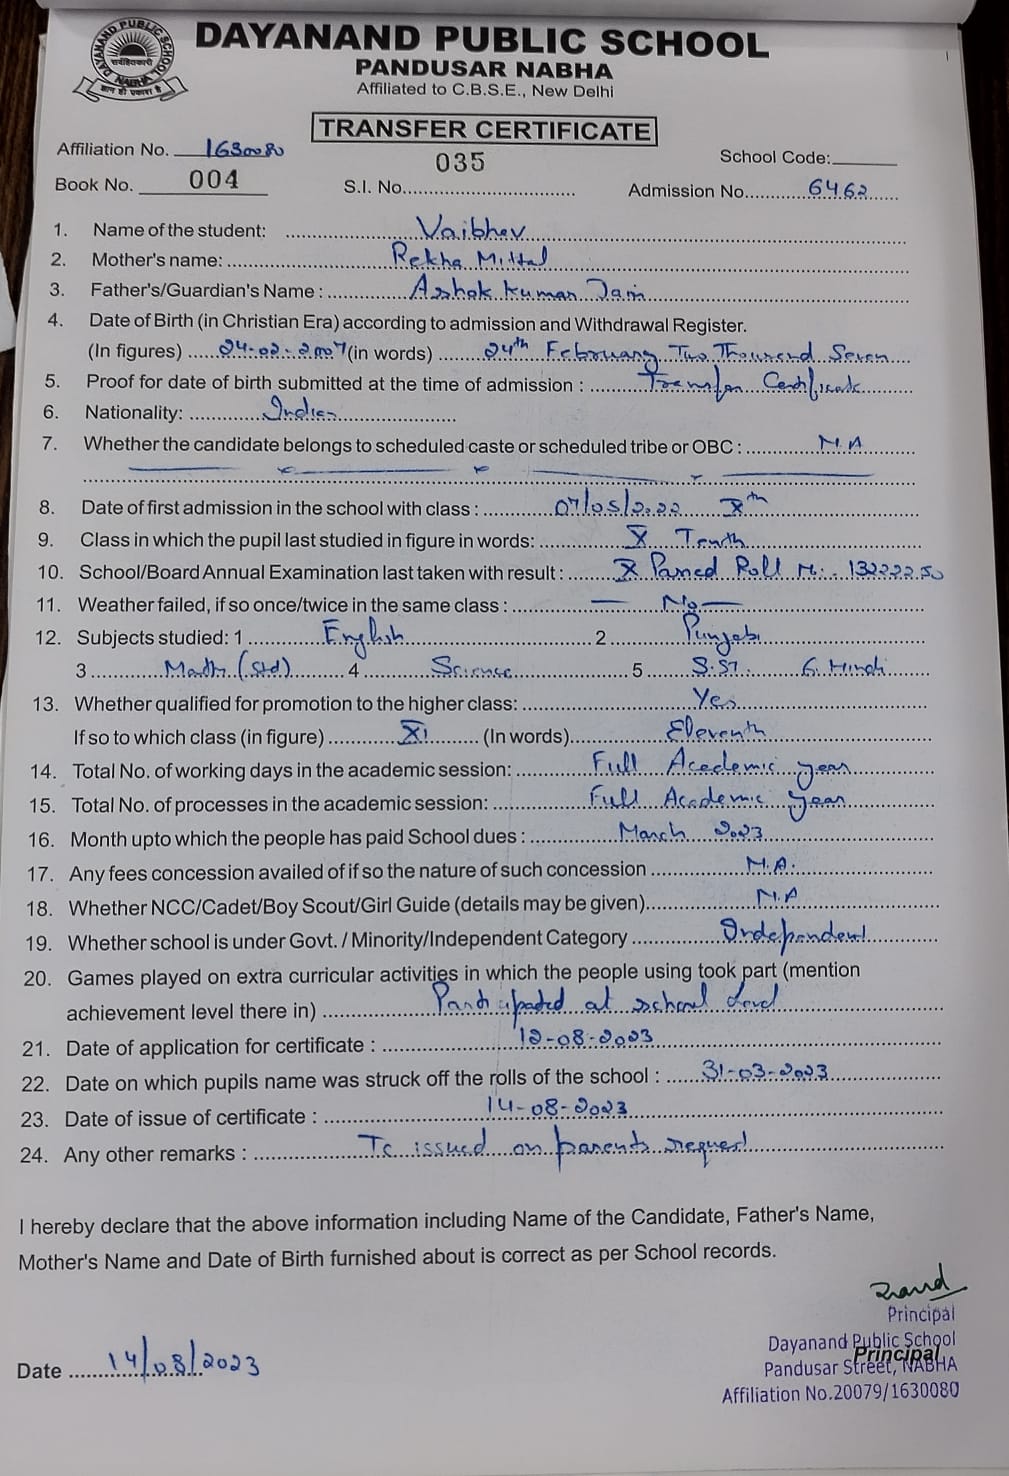 DAYANAND PUBLIC SCHOOL
DAYANAND PUBLIC SCHOOL
NABHA
PANDUSAR NABHA
Affiliated to C.B.S.E., New Delhi
TRANSFER CERTIFICATE
Affiliation No. 1630080
School Code:
Book No. 004 S.I. No. 035 Admission No. 6462
1. Name of the student: Vaibhav
2. Mother's name: Rekha Mittal
3. Father's/Guardian's Name : Ashok Kumar Jain
4. Date of Birth (in Christian Era) according to admission and Withdrawal Register.
(In figures) 24-02-2007 (in words) 24th February Two Thousand Seven
5. Proof for date of birth submitted at the time of admission : Transfer Certificate
6. Nationality: Indian
7. Whether the candidate belongs to scheduled caste or scheduled tribe or OBC : N.A
8. Date of first admission in the school with class : 07/05/2022 Xth
9. Class in which the pupil last studied in figure in words: X Tenth
10. School/Board Annual Examination last taken with result : X Passed Roll No. 13222250
11. Weather failed, if so once/twice in the same class : — No —
12. Subjects studied: 1 English 2 Punjabi
3 Math (Std) 4 Science 5 S.ST. 6. Hindi
13. Whether qualified for promotion to the higher class: Yes
If so to which class (in figure) XI (In words) Eleventh
14. Total No. of working days in the academic session: Full Academic year
15. Total No. of processes in the academic session: Full Academic year
16. Month upto which the people has paid School dues : March 2023
17. Any fees concession availed of if so the nature of such concession N.A.
18. Whether NCC/Cadet/Boy Scout/Girl Guide (details may be given) N.A
19. Whether school is under Govt. / Minority/Independent Category Independent
20. Games played on extra curricular activities in which the people using took part (mention
achievement level there in) Participated at school level
21. Date of application for certificate : 12-08-2023
22. Date on which pupils name was struck off the rolls of the school : 31-03-2023
23. Date of issue of certificate : 14-08-2023
24. Any other remarks : Tc issued on parents request
I hereby declare that the above information including Name of the Candidate, Father's Name,
Mother's Name and Date of Birth furnished about is correct as per School records.
Principal
Dayanand Public School
Principal
Pandusar Street, NABHA
Affiliation No.20079/1630080
Date 14/08/2023